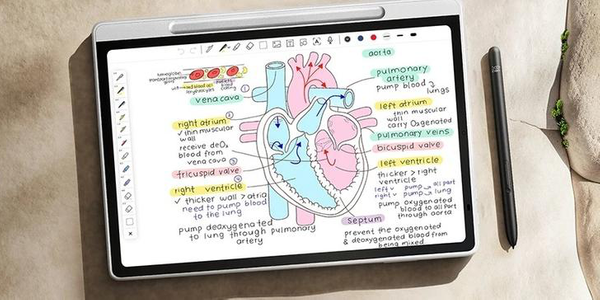 aorta
pulmonary
artery
pump blood
lungs
vena cava
left atrium
thin muscular
wall
carry O₂genated
right atrium
✓ thin muscular
wall
receive deO₂
blood from
vena cava
pulmonary veins
bicuspid valve
tricuspid valve
left ventricle
thicker > right
ventricle
left v pump → all part
right v pump → lung
right ventricle
✓ thicker wall > atria
need to pump blood
to the lung
pump oxygenated
blood to all part
through aorta
pump deoxygenated
to lung through pulmonary
artery
septum
prevent the oxygenated
& deoxygenated blood from
being mixed